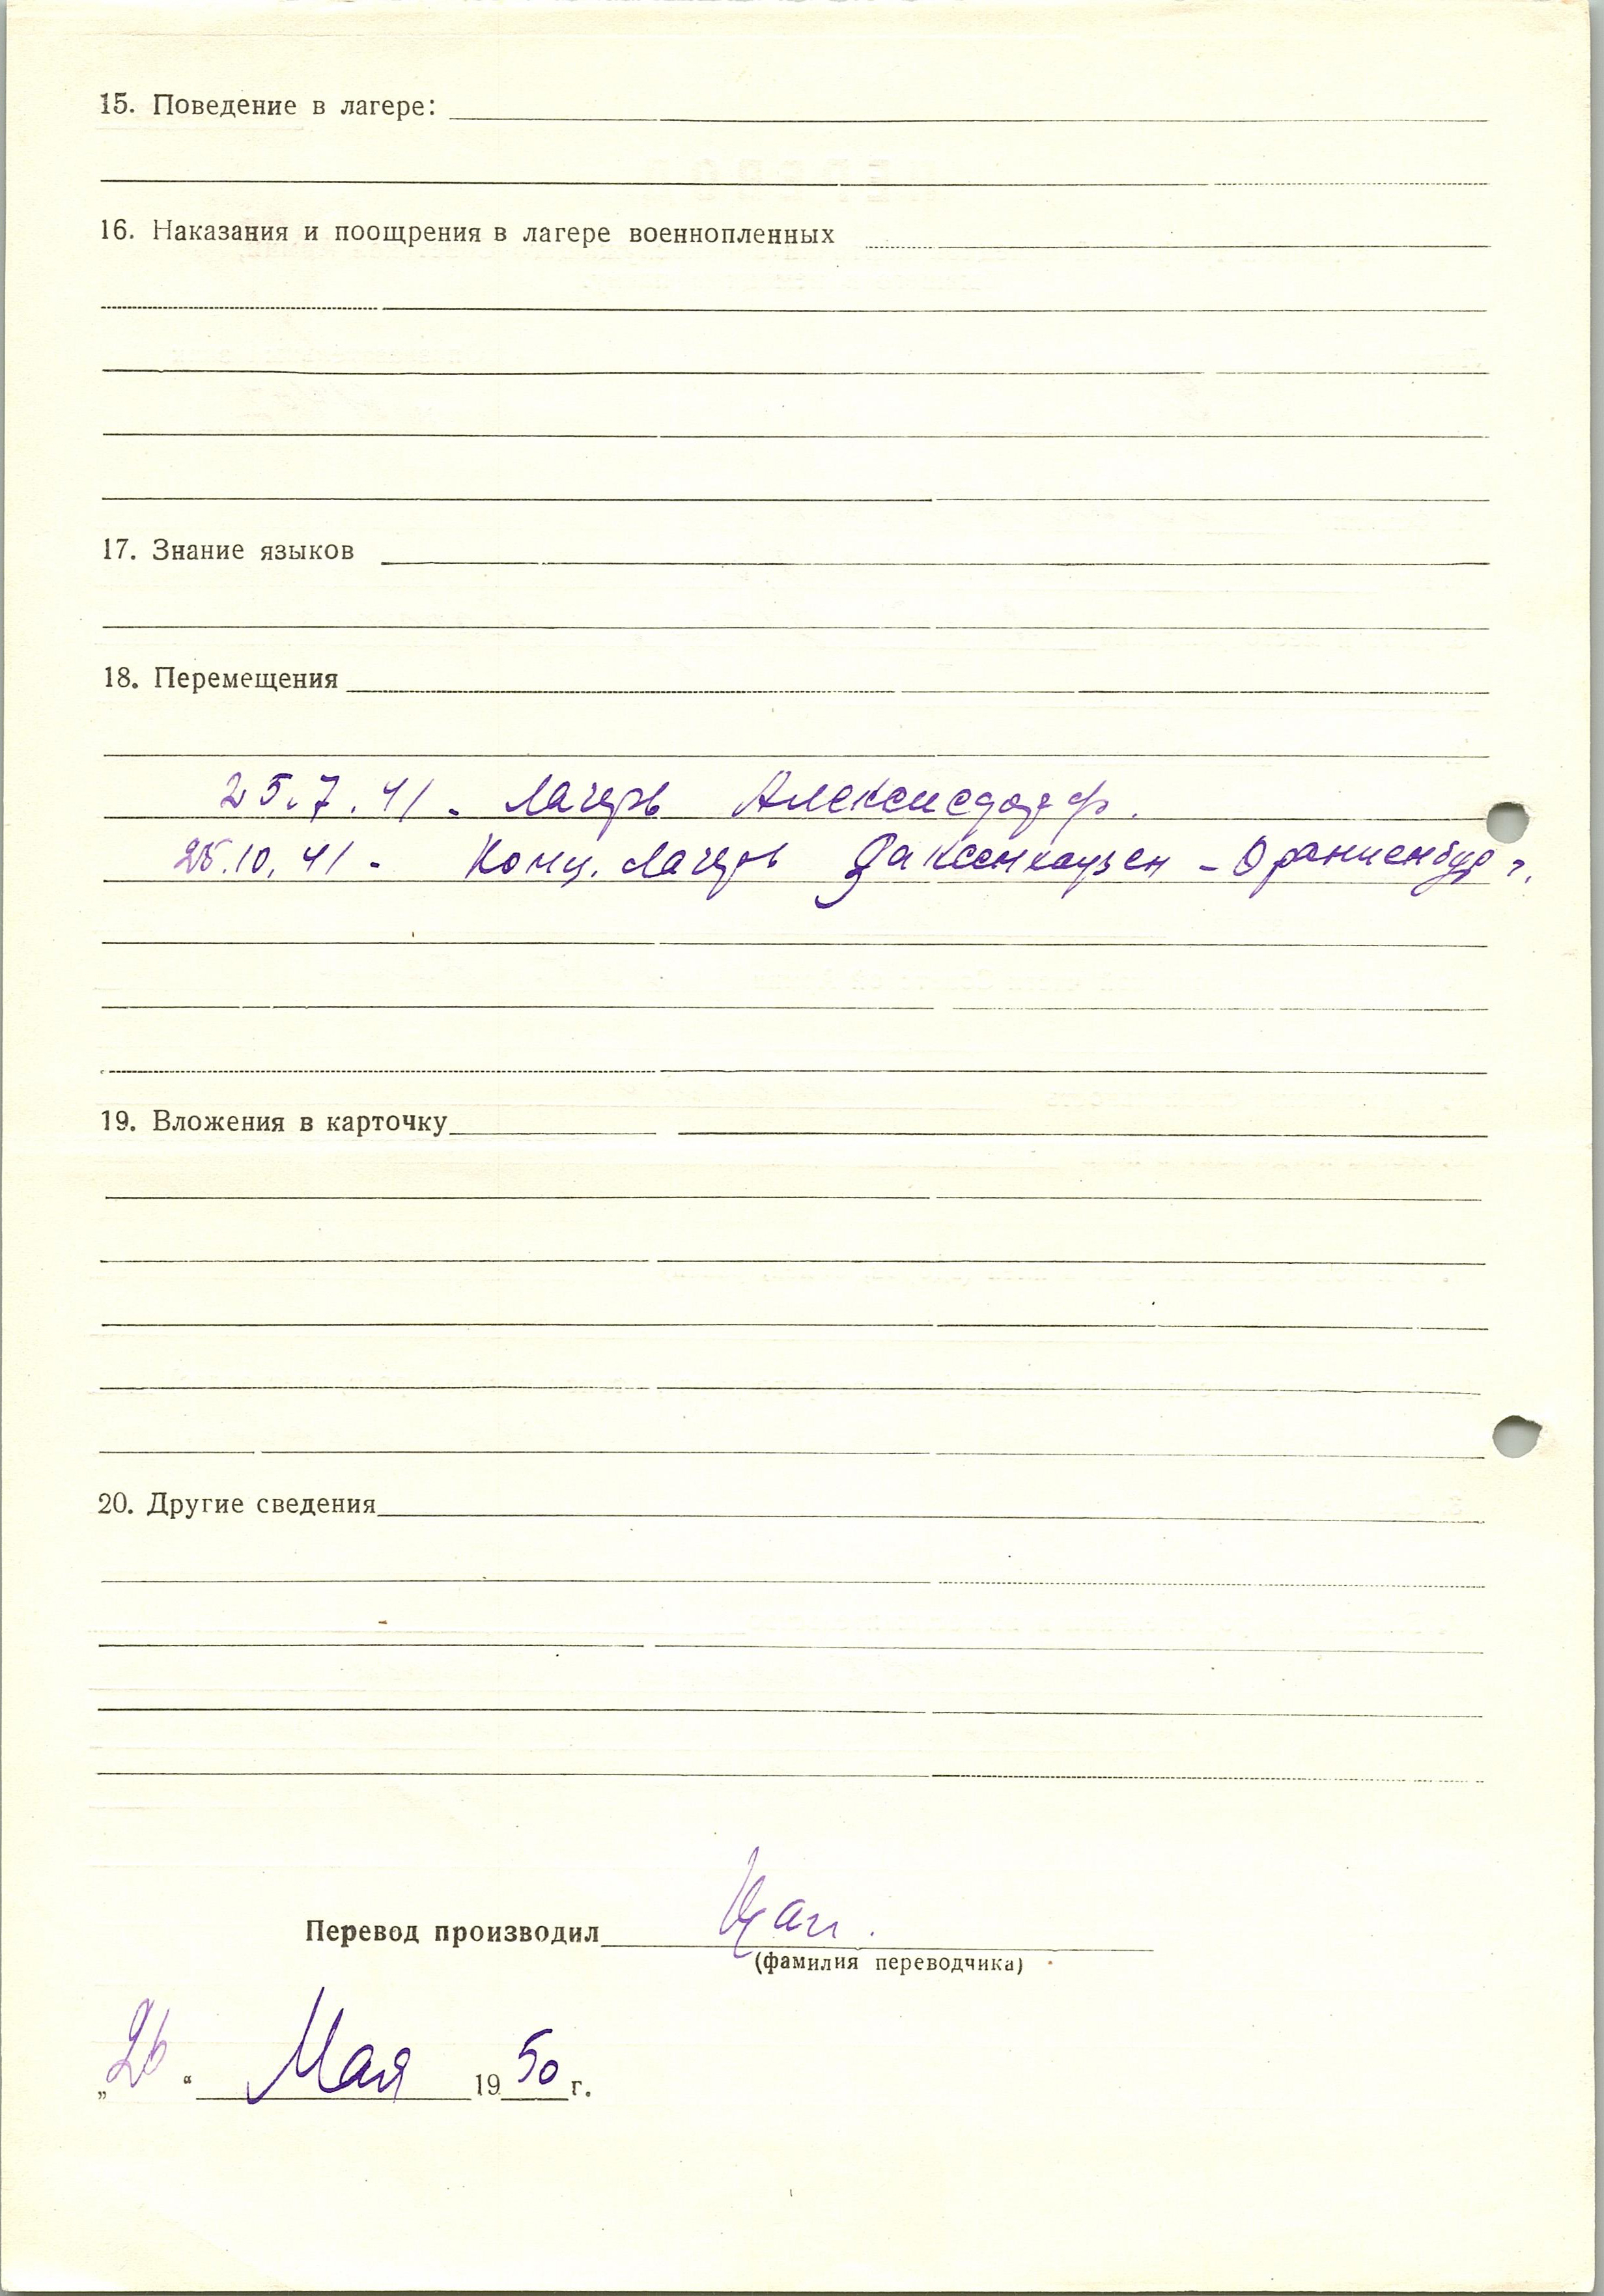 15. Поведение в лагере:
16. Наказания и поощрения в лагере военнопленных
17. Знание языков
18. Перемещения
25.7.41. Лагерь Алексисдорф.
25.10.41 - Конц. лагерь Заксенхаузен - Ораниенбург.
19. Вложения в карточку
20. Другие сведения
Перевод производил
(фамилия переводчика)
„26“ Мая 1950 г.